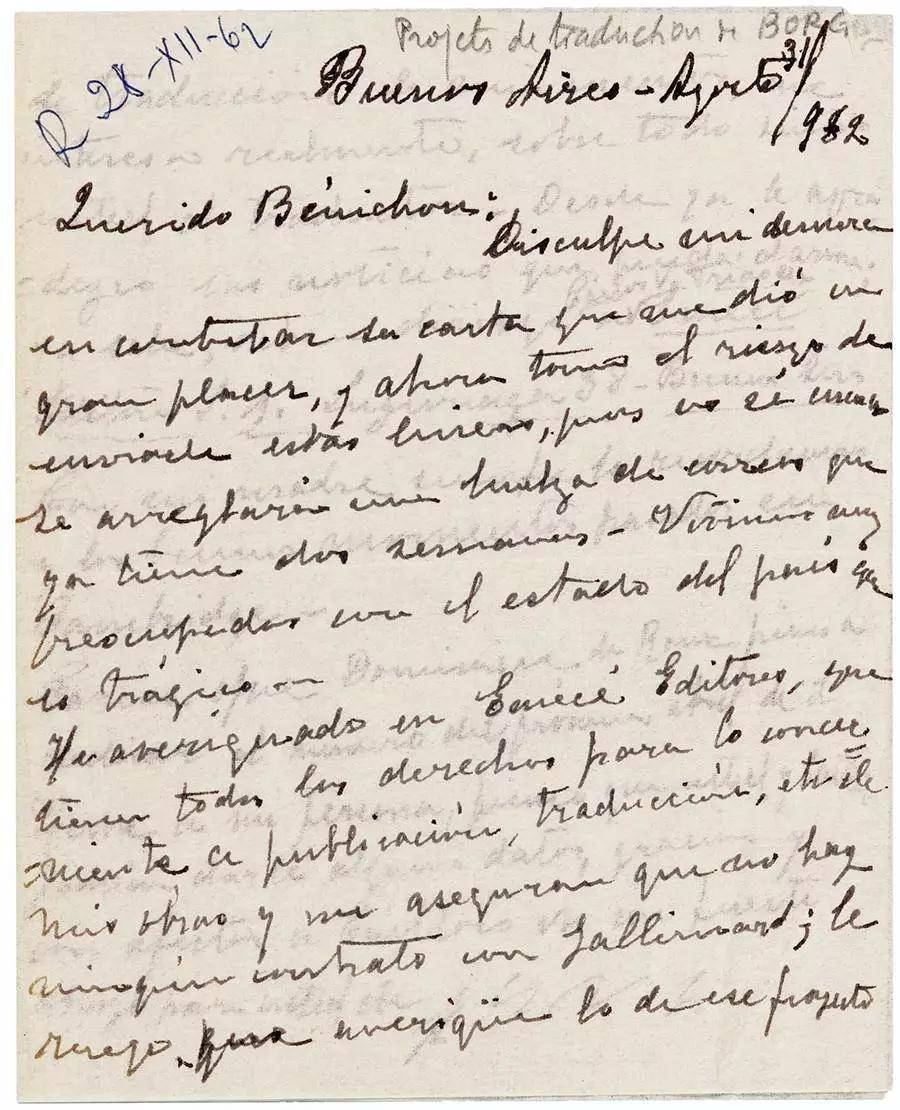 Projets de traduction de BORG
R 28-XII-62
Buenos Aires - Agosto 31/
962
Querido Bénichou:
Disculpe mi demora
en contestar su carta que me dió un
gran placer, y ahora tomo el riesgo de
enviarle estas lineas, pues no sé cuando
se arreglará una huelga de correos que
ya tiene dos semanas - Vivimos muy
preocupados con el estado del país que
es trágico -
He averiguado en Emecé Editores, que
tienen todos los derechos para lo concer
=niente a publicación, traducción, etc de
mis obras y me aseguran que no hay
ningún contrato con Gallimard; le
ruego, averigüe lo de ese proyecto